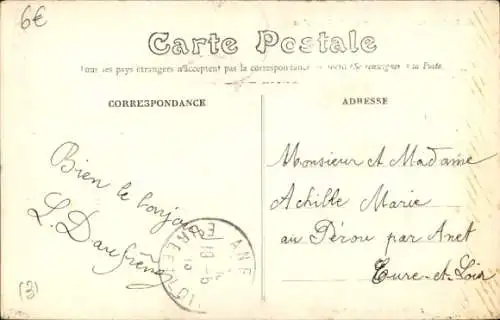 6€
Carte Postale
Tous les pays étrangers n'acceptent pas la correspondance au recto (Se renseigner à la Poste).
CORRESPONDANCE
ADRESSE
Bien le bonjour
L. Daufrêne
Monsieur et Madame
Achille Marie
au Pérou par Anet
Eure-et-Loir
ANET